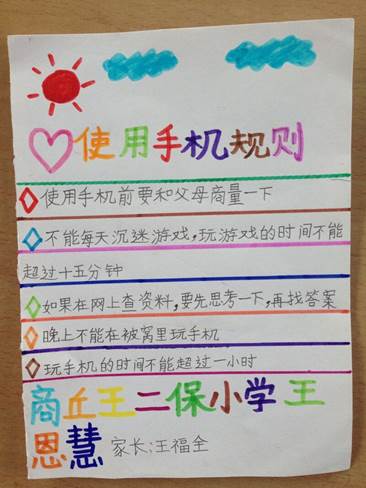 使用手机规则
使用手机前要和父母商量一下
不能每天沉迷游戏,玩游戏的时间不能
超过十五分钟
如果在网上查资料,要先思考一下,再找答案
晚上不能在被窝里玩手机
玩手机的时间不能超过一小时
商丘王二保小学王
恩慧 家长:王福全